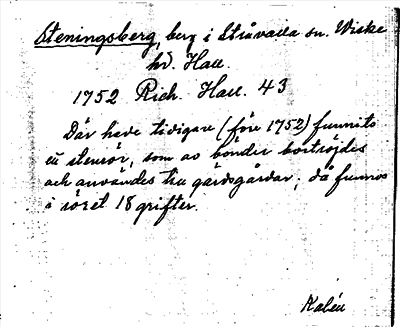 Steningsberg, berg i Stråvalla sn. Wiske
hd. Hall.
1752 Rich. Hall. 43
Där have tidigare (före 1752) funnits
ett stenrör, som av bönder bortröjdes
och användes till gärdsgårdar; då funnos
i röret 18 grifter.
Kalén